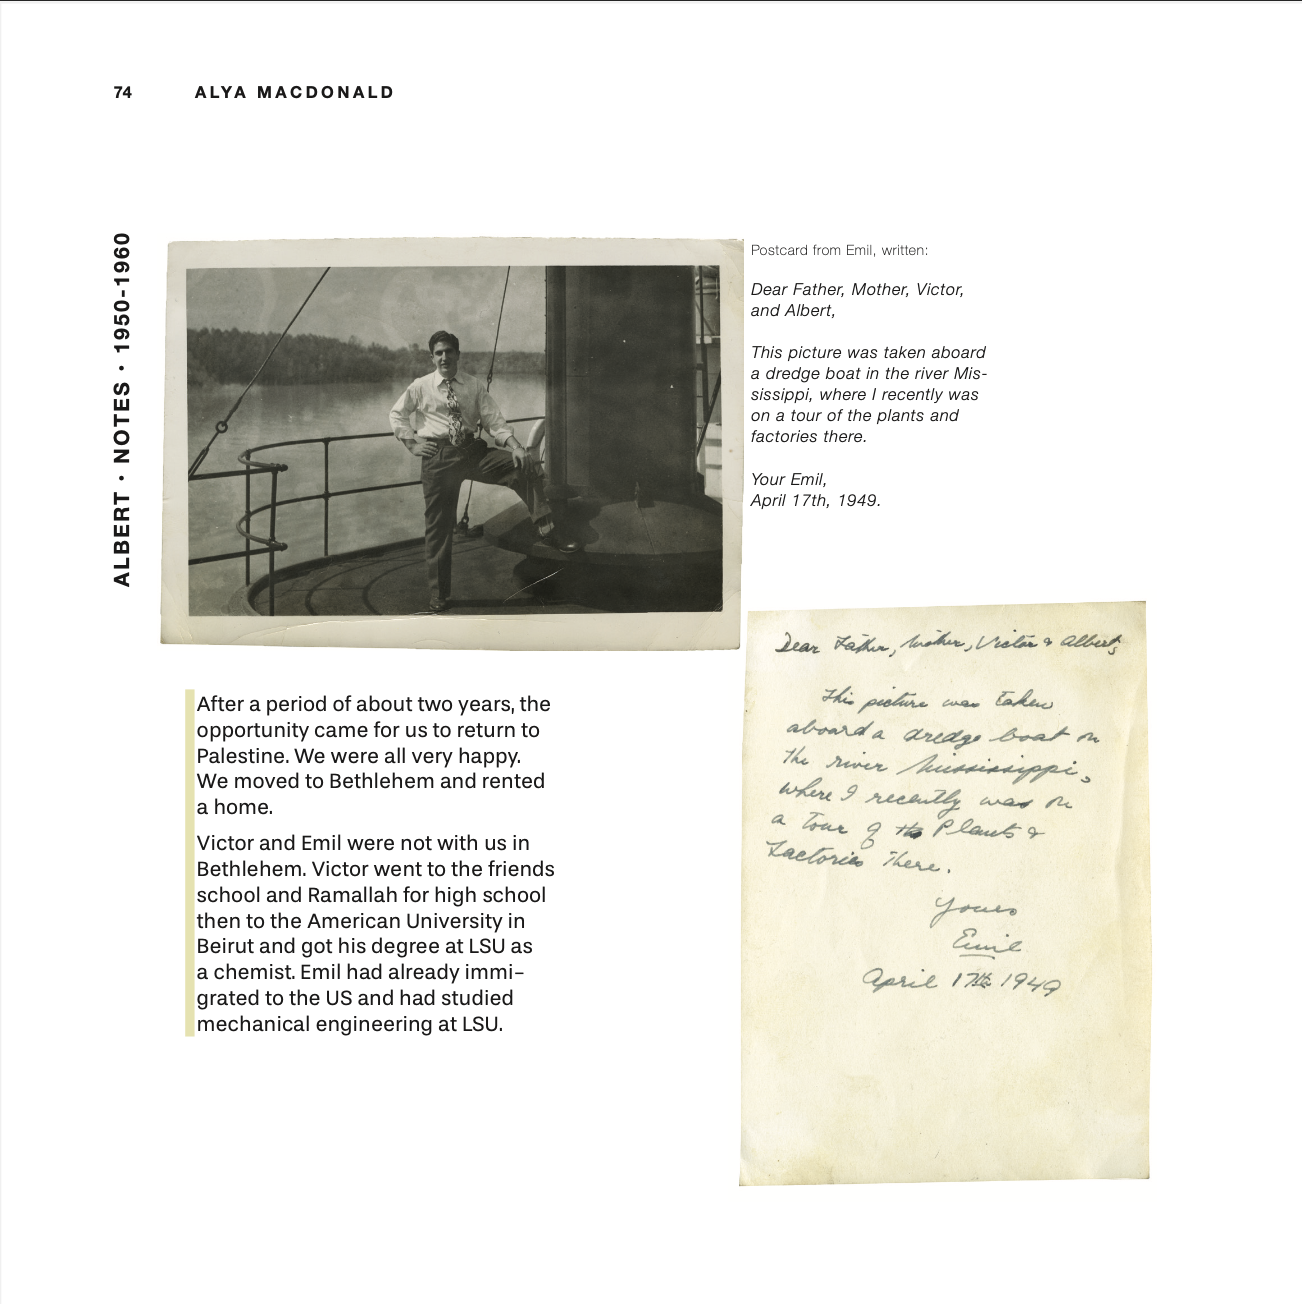 74 ALYA MACDONALD
ALBERT • NOTES • 1950-1960
Postcard from Emil, written:
Dear Father, Mother, Victor,
and Albert,
This picture was taken aboard
a dredge boat in the river Mis-
sissippi, where I recently was
on a tour of the plants and
factories there.
Your Emil,
April 17th, 1949.
After a period of about two years, the
opportunity came for us to return to
Palestine. We were all very happy.
We moved to Bethlehem and rented
a home.
Victor and Emil were not with us in
Bethlehem. Victor went to the friends
school and Ramallah for high school
then to the American University in
Beirut and got his degree at LSU as
a chemist. Emil had already immi-
grated to the US and had studied
mechanical engineering at LSU.
Dear Father, Mother, Victor & Albert,
This picture was taken
aboard a dredge boat on
the river Mississippi,
where I recently was on
a tour of the Plants &
Factories there.
Yours
Emil
April 17th 1949